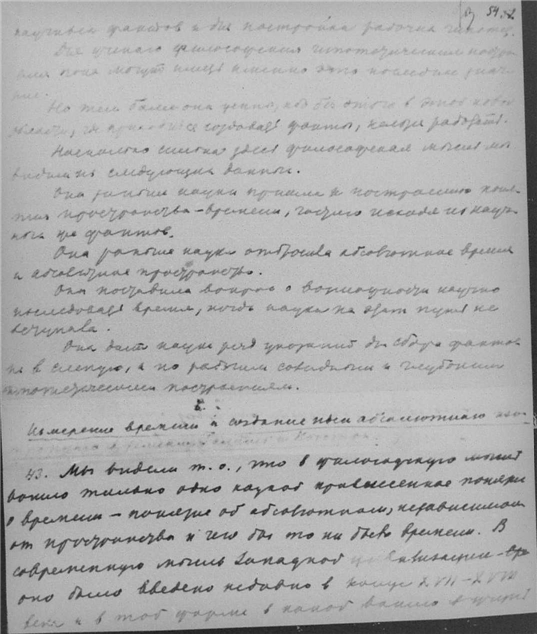 научных фактов и для постройки рабочих гипотез.
Для ученого философские гипотетические построе-
ния пока могут иметь именно это последнее значе-
ние.
Но тем более они ценны, ибо без этого в этой новой
области, где приходится создавать факты, нельзя работать.
Насколько сильна здесь философская мысль мы
видим из следующих данных.
Она раньше науки пришла к построению поня-
тия пространства-времени, частью исходя из науч-
ных же фактов.
Она раньше науки отбросила абсолютное время
и абсолютное пространство.
Она поставила вопрос о возможности научно
исследовать время, когда наука на этот путь не
вступала.
Она дает науке ряд указаний для сбора фактов
не в слепую, а по рабочим и глубоким
гипотетическим построениям.
Измерение времени и создание идеи абсолютного
43. Мы видели т. о., что в философскую мысль
вошло только одно наукой привнесенное понятие
о времени – понятие об абсолютном, независимом
от пространства и чего бы то ни было времени. В
современную мысль Западной цивилизации
оно было введено недавно в конце XVII-XVIII
века и в той форме в какой вошло в